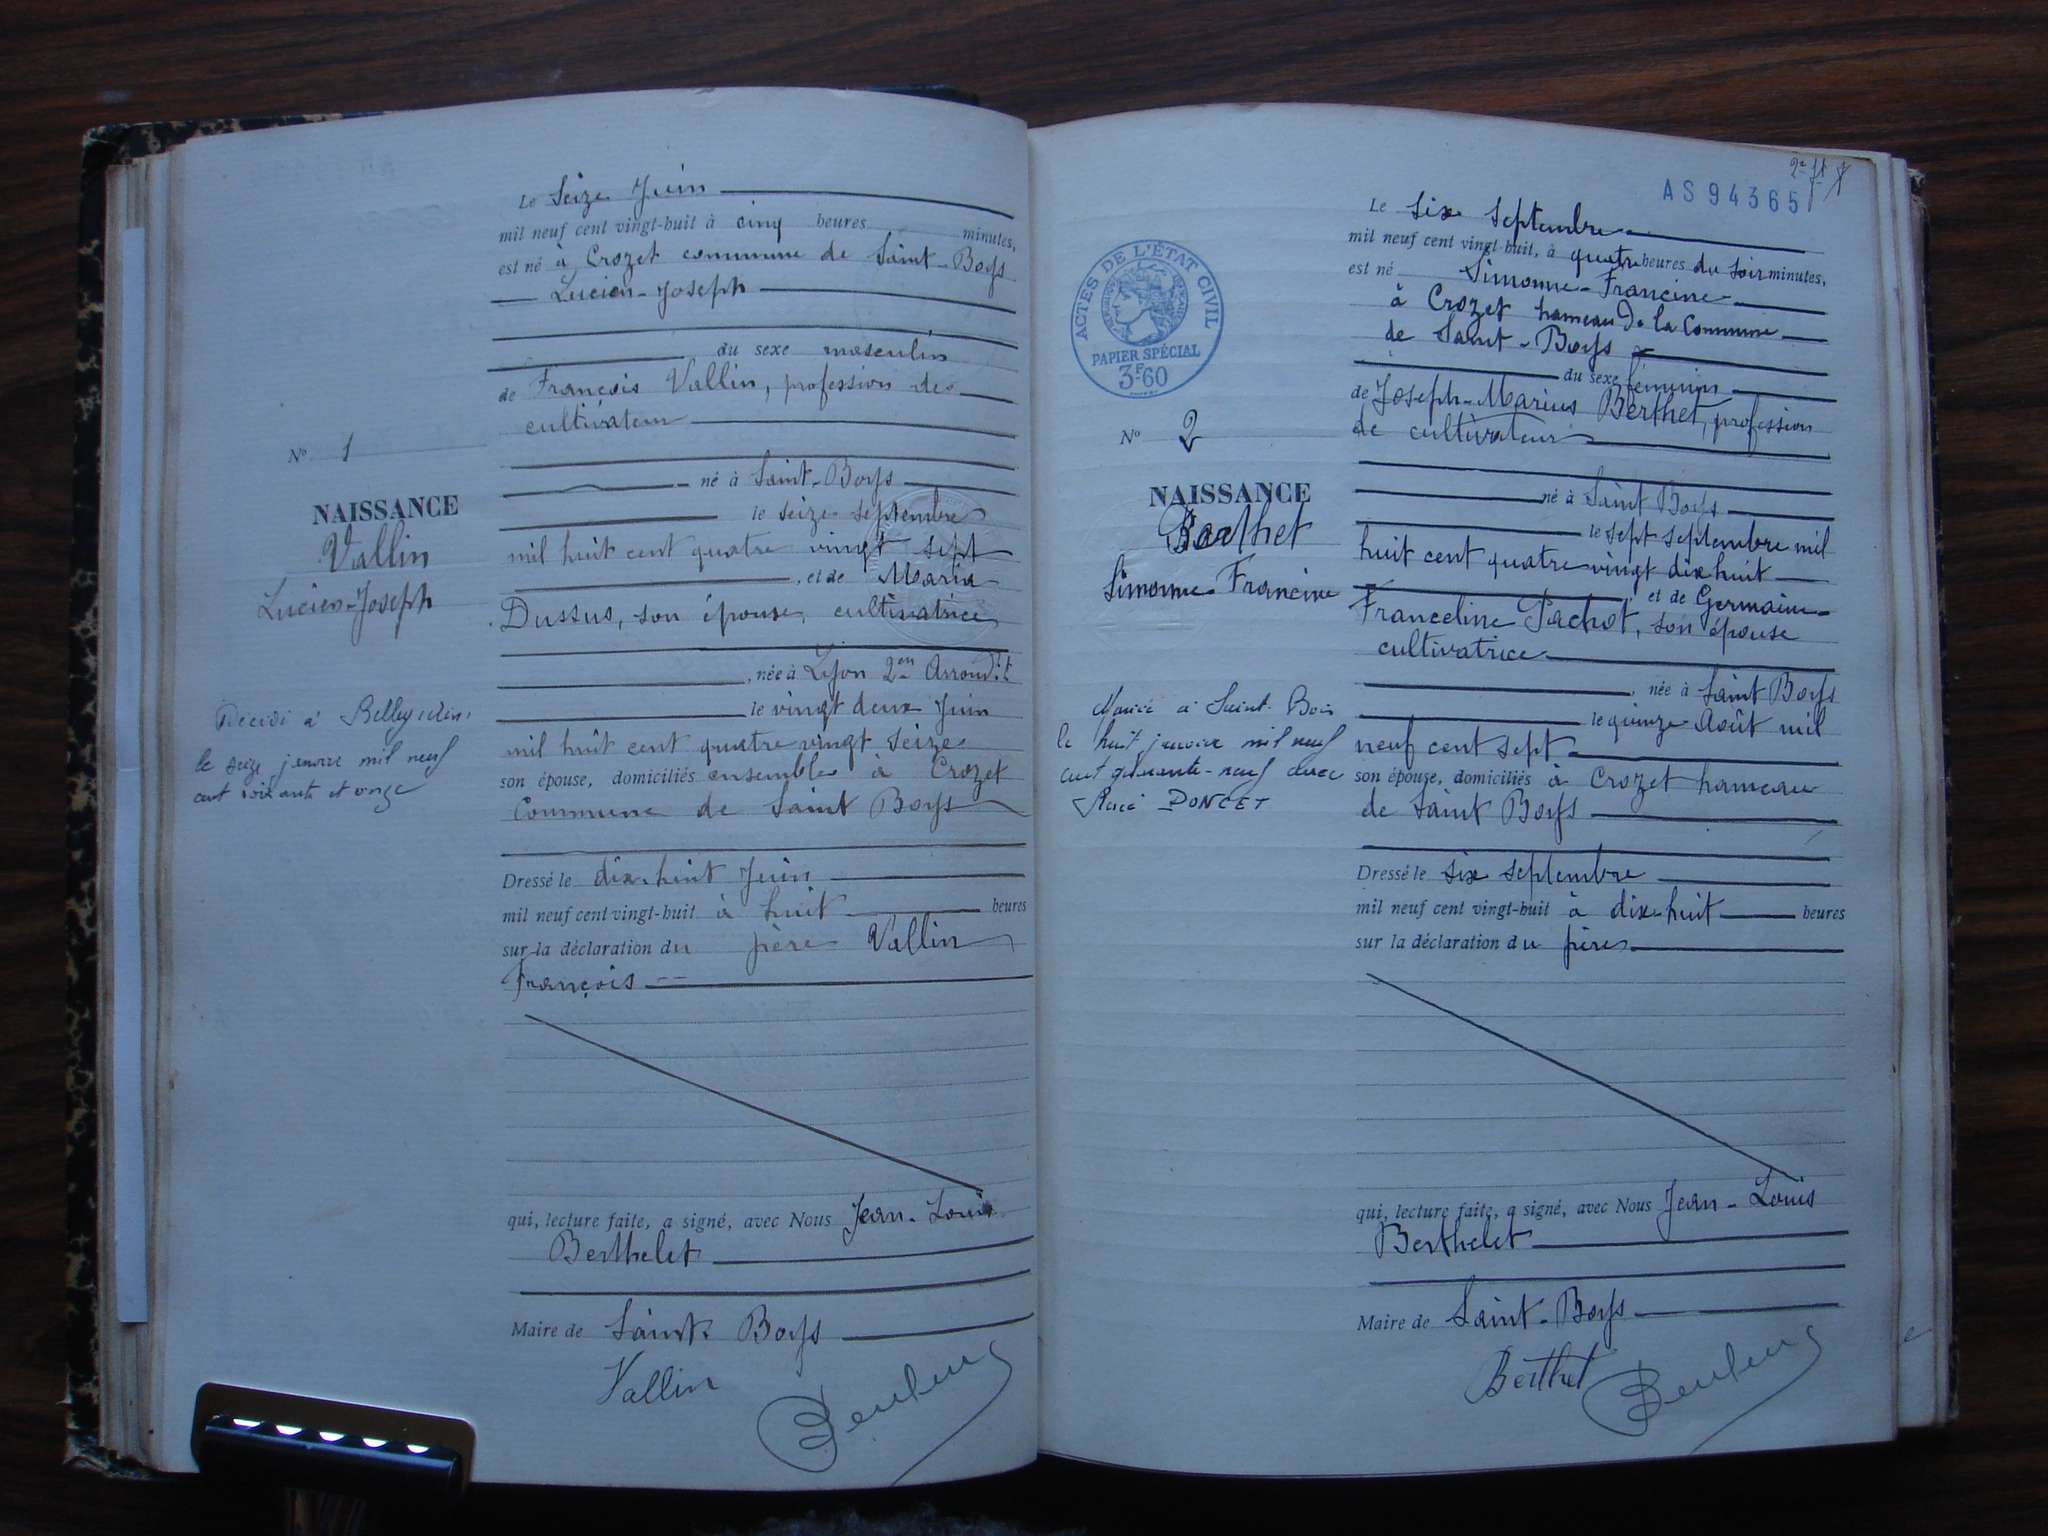 Le Seize Juin
mil neuf cent vingt-huit à cinq heures minutes,
est né à Crozet commune de Saint-Boys
Lucien-Joseph
du sexe masculin
de François Vallin, profession de
cultivateur
né à Saint-Boys
le seize septembre
mil huit cent quatre vingt sept
, et de Maria
Dussus, son épouse, cultivatrice
, née à Lyon 2em Arrondt
le vingt deux Juin
mil huit cent quatre vingt seize
son épouse, domiciliés ensemble à Crozet
Commune de Saint Boys
Dressé le dix-huit Juin
mil neuf cent vingt-huit à huit heures
sur la déclaration du père Vallin
François
qui, lecture faite, a signé, avec Nous Jean-Louis
Berthelet
Maire de Saint-Boys
Vallin
No 1
NAISSANCE
Vallin
Lucien-Joseph
Décédé à Belley
le seize janvier mil neuf
cent soixante et onze
AS 94365
ACTES DE L'ÉTAT CIVIL
PAPIER SPÉCIAL
3F60
No 2
NAISSANCE
Berthet
Simonne-Francine
Mariée à Saint-Bois
le huit janvier mil neuf
cent quarante-neuf avec
René PONCET
Le six septembre
mil neuf cent vingt-huit, à quatre heures du soir minutes,
est né Simonne-Francine
à Crozet hameau de la Commune
de Saint-Boys
du sexe féminin
de Joseph-Marius Berthet, profession
de cultivateur
né à Saint Boys
le sept septembre mil
huit cent quatre vingt dix huit
, et de Germaine
Franceline Pachot, son épouse
cultivatrice
, née à Saint Boys
le quinze Août mil
neuf cent sept
son épouse, domiciliés à Crozet hameau
de Saint Boys
Dressé le six septembre
mil neuf cent vingt-huit à dix-huit heures
sur la déclaration du père
qui, lecture faite, a signé, avec Nous Jean-Louis
Berthelet
Maire de Saint-Boys
Berthet